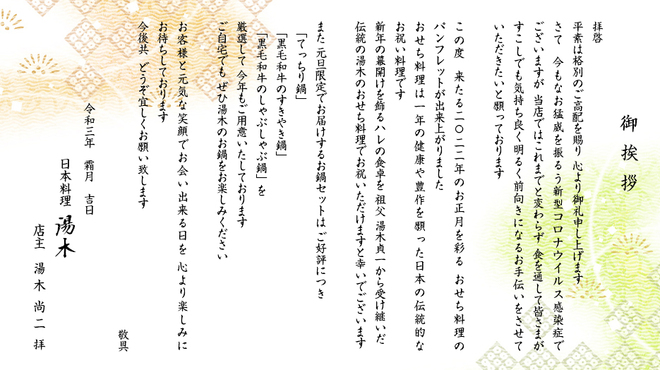 御挨拶
拝啓
平素は格別のご高配を賜り 心より御礼申し上げます
さて 今もなお猛威を振るう新型コロナウイルス感染症で
ございますが 当店ではこれまでと変わらず 食を通して皆さまが
すこしでも気持ち良く明るく前向きになるお手伝いをさせて
いただきたいと願っております
この度 来たる二〇二二年のお正月を彩る おせち料理の
パンフレットが出来上がりました
おせち料理は 一年の健康や豊作を願った日本の伝統的な
お祝い料理です
新年の幕開けを飾るハレの食卓を 祖父 湯木貞一から受け継いだ
伝統の湯木のおせち料理でお祝いただけますと幸いでございます
また 元旦限定でお届けするお鍋セットはご好評につき
「てっちり鍋」
「黒毛和牛のすきやき鍋」
「黒毛和牛のしゃぶしゃぶ鍋」を
厳選して 今年もご用意いたしております
ご自宅でも ぜひ湯木のお鍋をお楽しみください
お客様と元気な笑顔でお会い出来る日を 心より楽しみに
お待ちしております
今後共 どうぞ宜しくお願い致します
敬具
令和三年 霜月 吉日
日本料理 湯木
店主 湯木尚二 拝